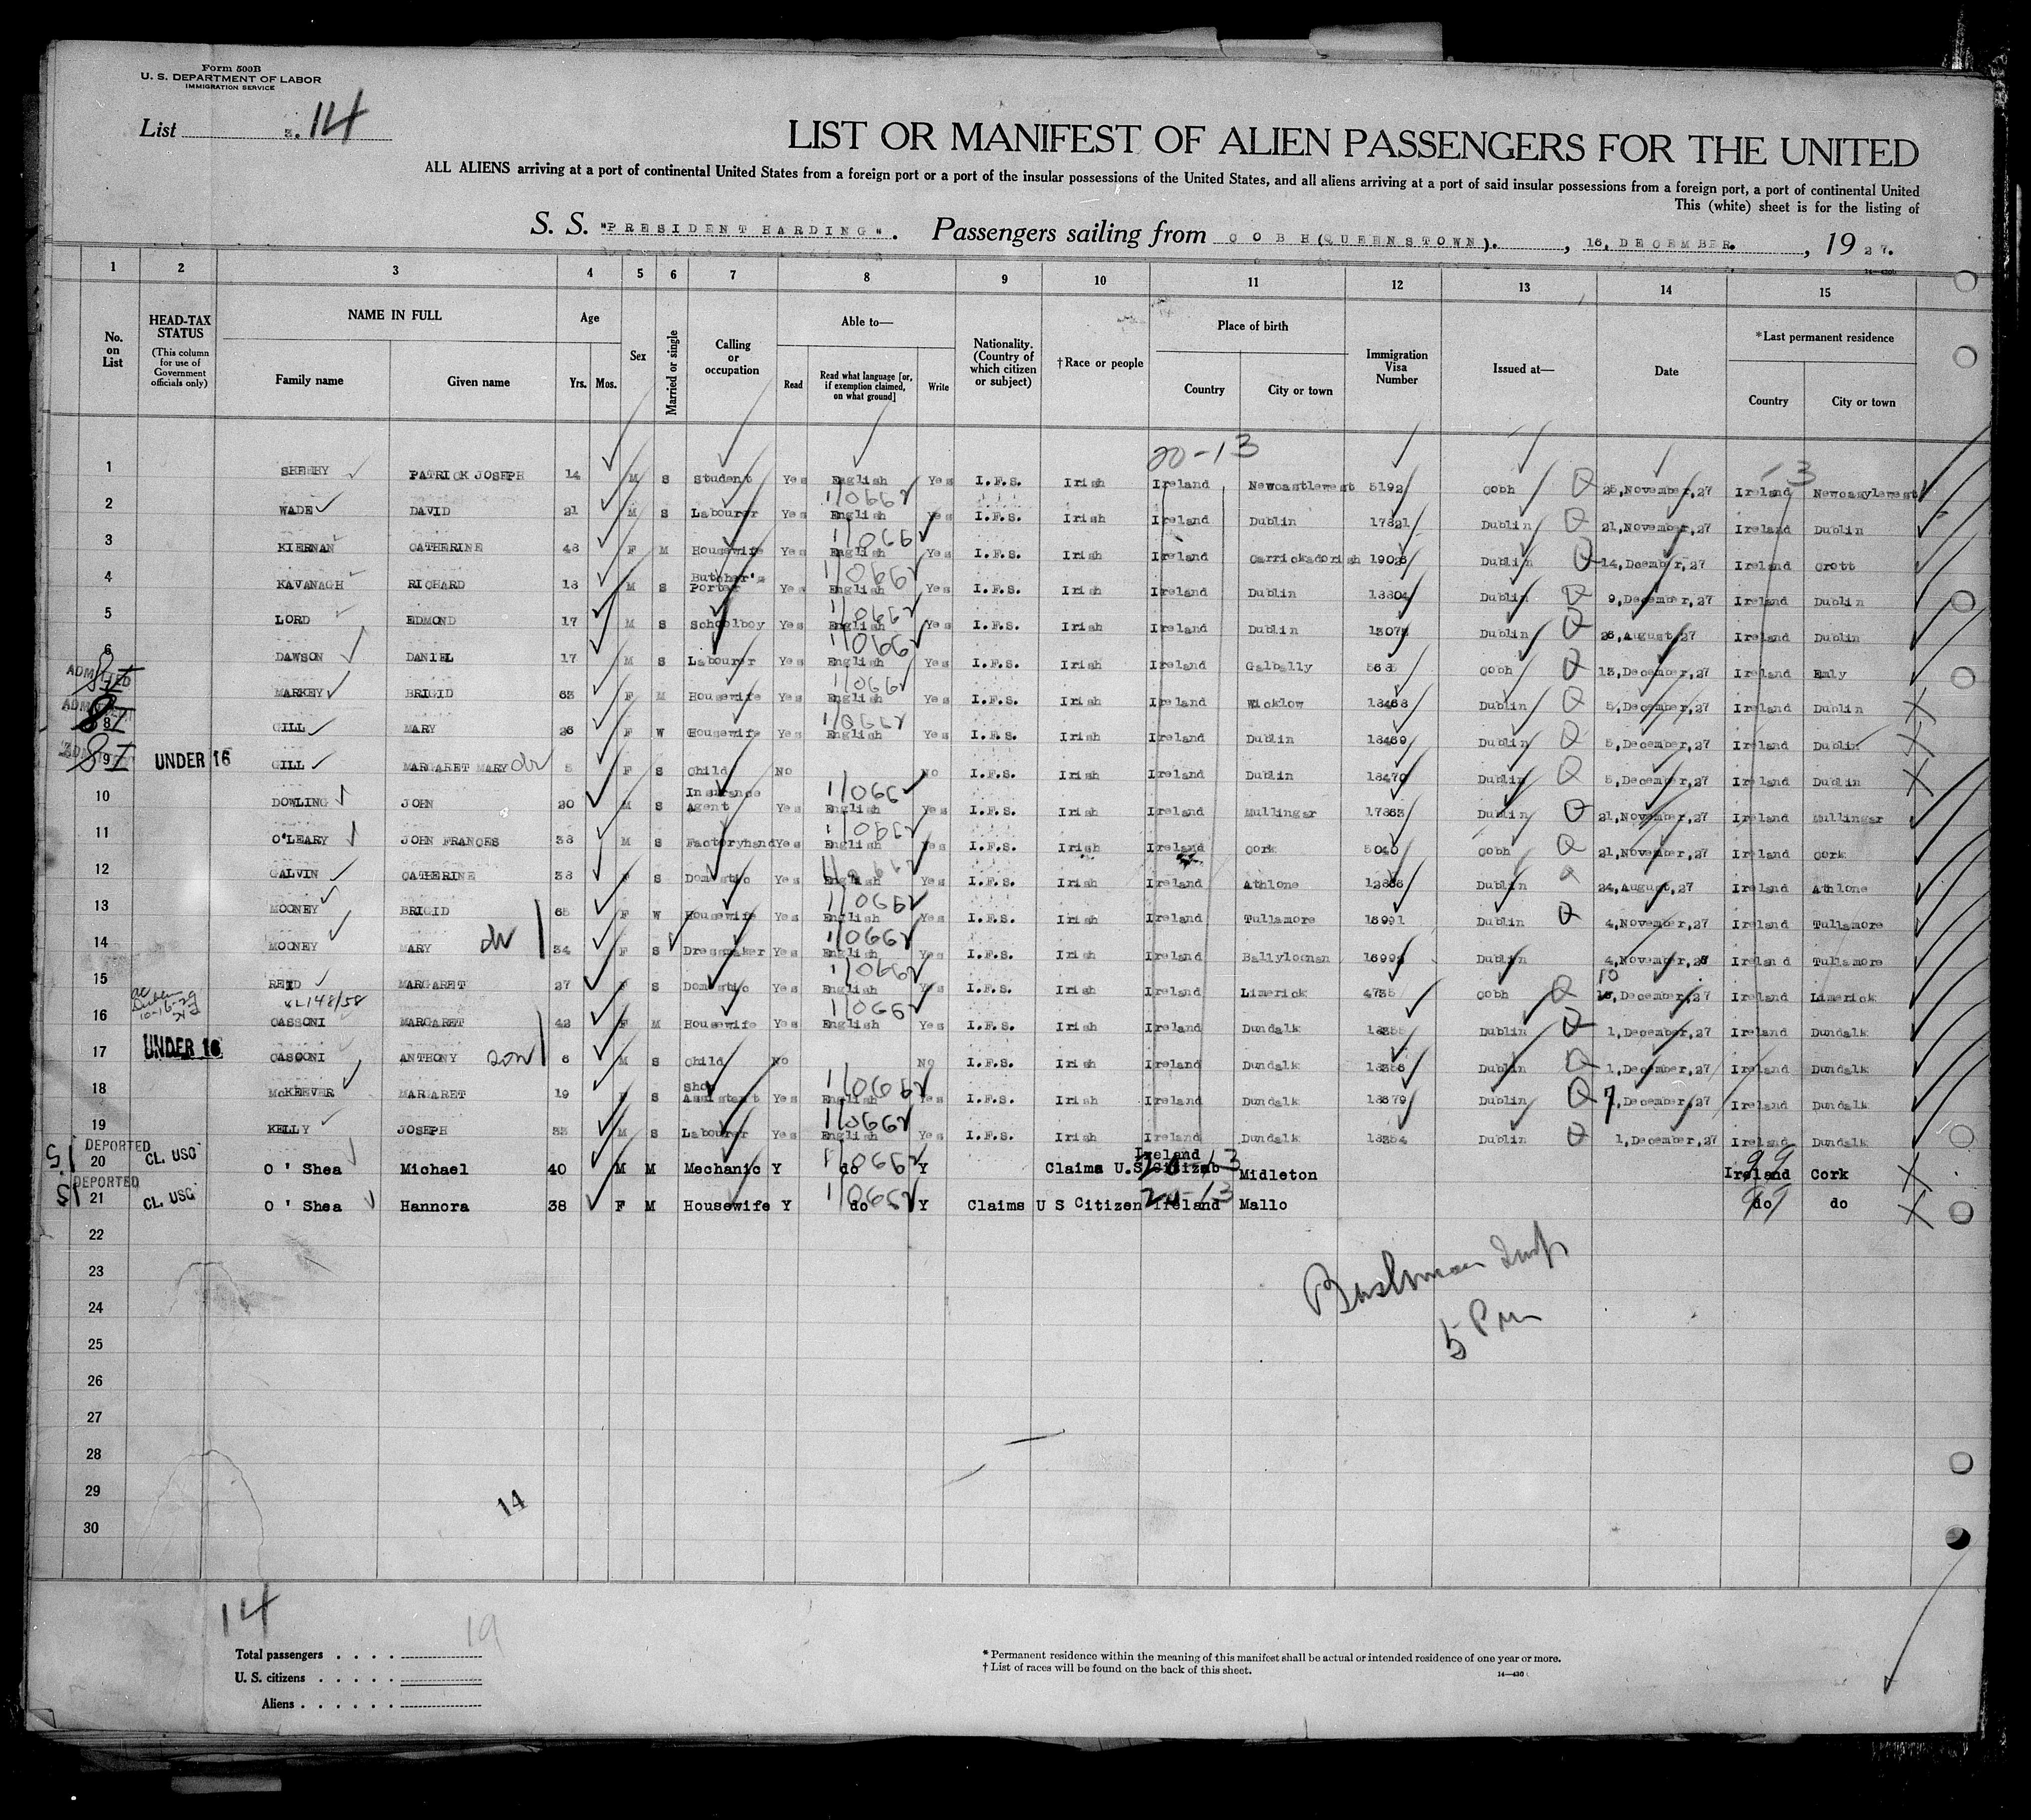 Form 500B
U. S. DEPARTMENT OF LABOR
IMMIGRATION SERVICE
List 3. 14
LIST OR MANIFEST OF ALIEN PASSENGERS FOR THE UNITED
ALL ALIENS arriving at a port of continental United States from a foreign port or a port of the insular possessions of the United States, and all aliens arriving at a port of said insular possessions from a foreign port, a port of continental United
This (white) sheet is for the listing of
S. S. "PRESIDENT HARDING". Passengers sailing from COBH(QUEENSTOWN). , 16, DECEMBER. , 1927.
14—430b
1 2 3 4 5 6 7 8 9 10 11 12 13 14 15
No. on List
HEAD-TAX STATUS (This column for use of Government officials only)
NAME IN FULL Family name Given name
Age Yrs. Mos.
Sex
Married or single
Calling or occupation
Able to— Read Read what language [or, if exemption claimed, on what ground] Write
Nationality. (Country of which citizen or subject)
†Race or people
Place of birth Country City or town
Immigration Visa Number
Issued at—
Date
*Last permanent residence Country City or town
20-13
1 SHEEHY PATRICK JOSEPH 14 M S Student Yes English Yes I.F.S. Irish Ireland Newcastlewest 5192 Cobh 25,November,27 Ireland Newcasylewest
2 WADE DAVID 21 M S Labourer Yes English Yes I.F.S. Irish Ireland Dublin 17821 Dublin 21,November,27 Ireland Dublin
3 KIERNAN CATHERINE 48 F M Housewife Yes English Yes I.F.S. Irish Ireland Carrickadorish 19028 Dublin 14,Dcember,27 Ireland Crott
4 KAVANAGH RICHARD 18 M S Butcher's Porter Yes English Yes I.F.S. Irish Ireland Dublin 18804 Dublin 9,December,27 Ireland Dublin
5 LORD EDMOND 17 M S Schoolboy Yes English Yes I.F.S. Irish Ireland Dublin Dublin 26,August,27 Ireland Dublin
6 DAWSON DANIEL 17 M S Labourer Yes English Yes I.F.S. Irish Ireland Galbally Cobh 13,December,27 Ireland Emly
ADMITTED MARKEY BRIGID 63 F M Housewife Yes English Yes I.F.S. Irish Ireland Wicklow 18468 Dublin 5,December,27 Ireland Dublin
8 GILL MARY 26 F W Housewife Yes English Yes I.F.S. Irish Ireland Dublin 18469 Dublin 5,December,27 Ireland Dublin
9 UNDER 16 GILL MARGARET MARY 5 F S Child No No I.F.S. Irish Ireland Dublin 18470 Dublin 5,December,27 Ireland Dublin
10 DOWLING JOHN 20 M S Insurance Agent Yes English Yes I.F.S. Irish Ireland Mullingar 17863 Dublin 21,November,27 Ireland Mullingar
11 O'LEARY JOHN FRANCES 38 M S Factoryhand Yes English Yes I.F.S. Irish Ireland Cork 5040 Cobh 21,November,27 Ireland Cork
12 GALVIN CATHERINE 38 F S Domestic Yes English Yes I.F.S. Irish Ireland Athlone Dublin 24,August,27 Ireland Athlone
13 MOONEY BRIGID 65 F W Housewife Yes English Yes I.F.S. Irish Ireland Tullamore 16991 Dublin 4,November,27 Ireland Tullamore
14 MOONEY MARY 34 F S Dressmaker Yes English Yes I.F.S. Irish Ireland Ballyloonan Dublin 4,November,28 Ireland Tullamore
15 REID MARGARET 27 F S Domestic Yes English Yes I.F.S. Irish Ireland Limerick 4735 Cobh 10 December,27 Ireland Limerick
16 CASSONI MARGARET 42 F M Housewife Yes English Yes I.F.S. Irish Ireland Dundalk Dublin 1,December,27 Ireland Dundalk
17 UNDER 16 CASSONI ANTHONY son 6 M S Child No No I.F.S. Irish Ireland Dundalk Dublin 1,December,27 Ireland Dundalk
18 McKEEVER MARGARET 19 F S Shop Assistant Yes English Yes I.F.S. Irish Ireland Dundalk 18679 Dublin 7,December,27 Ireland Dundalk
19 KELLY JOSEPH 33 M S Labourer Yes English Yes I.F.S. Irish Ireland Dundalk 18354 Dublin 1,December,27 Ireland Dundalk
DEPORTED 20 CL. USC O ' Shea Michael 40 M M Mechanic Y do Y Claims U.S Citizen Ireland Midleton Ireland Cork
DEPORTED 21 CL. USC O ' Shea Hannora 38 F M Housewife Y do Y Claims U S Citizen Ireland Mallo do do
22
23
24
25
26
27
28
29
30
5 Pm
14
14
19
Total passengers
U. S. citizens
Aliens
* Permanent residence within the meaning of this manifest shall be actual or intended residence of one year or more.
† List of races will be found on the back of this sheet.
14—430